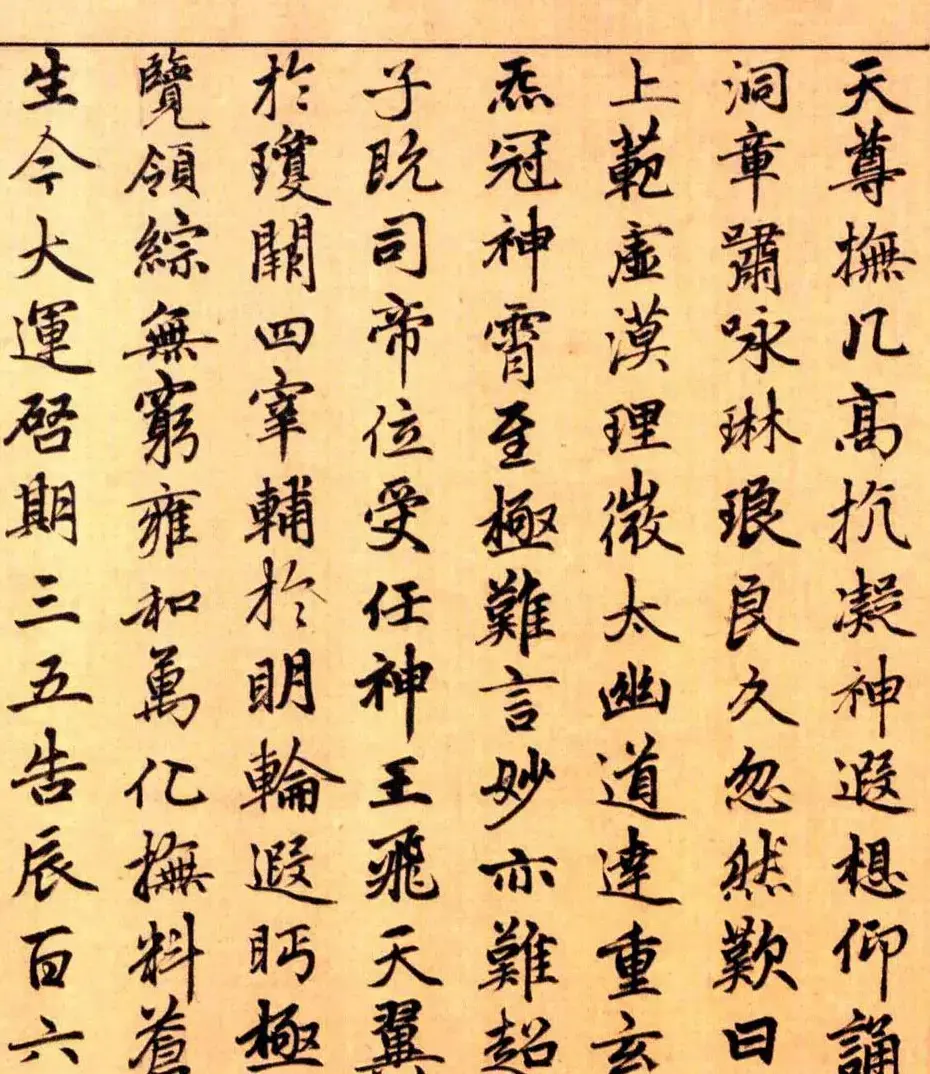 天尊撫几高抗凝神遐想仰誦
洞章嘯咏琳琅良久忽然歎曰
上範虛漠理微太幽道達重玄
炁冠神霄至極難言妙亦難超
子既司帝位受任神王飛天翼
於瓊闕四宰輔於明輪遐眄極
覽領綜無窮雍和萬化撫料蒼
生今大運啓期三五告辰百六